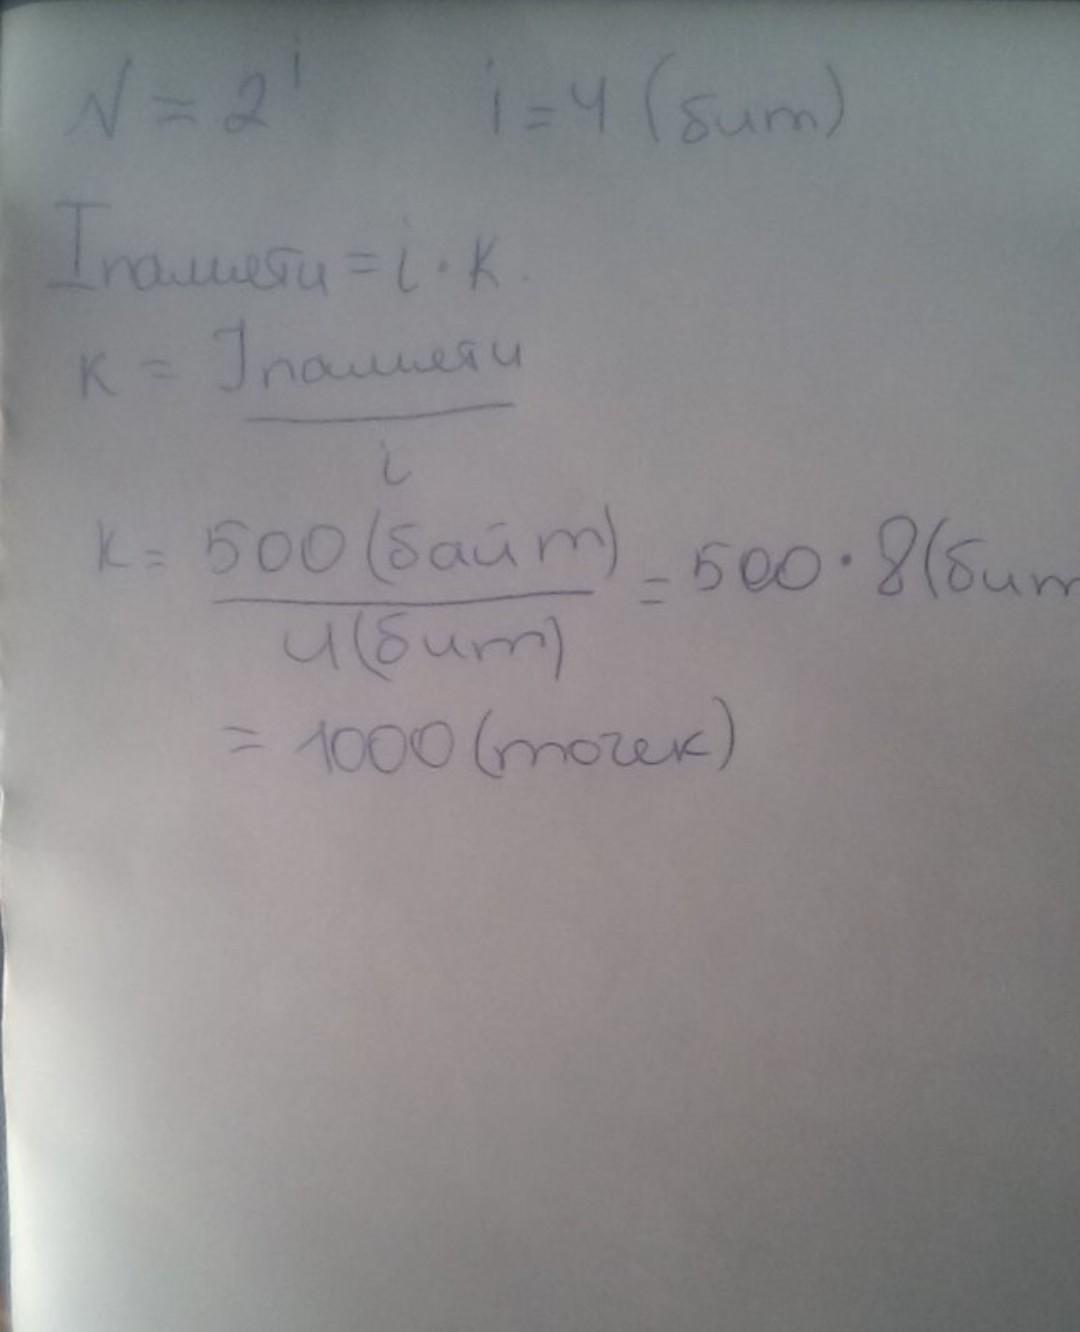 N = 2^i i = 4 (бит)
Iпамяти = i · K.
K = Iпамяти
i
K = 500 (байт) = 500 · 8 (бит
4 (бит)
= 1000 (точек)